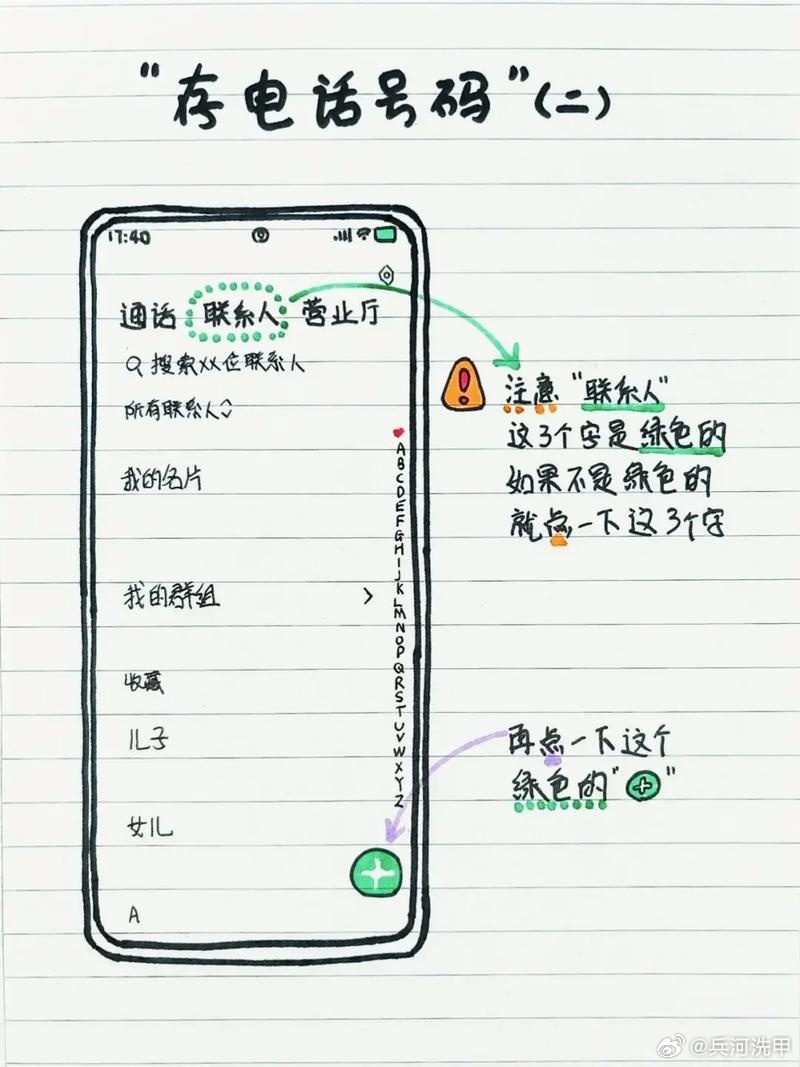 “存电话号码”(二)
17:40
通话 联系人 营业厅
搜索XX位联系人
所有联系人
我的名片
我的群组 >
收藏
儿子
女儿
A
A
B
C
D
E
F
G
H
I
J
K
L
M
N
O
P
Q
R
S
T
U
V
W
X
Y
Z
注意“联系人”
这3个字是绿色的
如果不是绿色的
就点一下这3个字
再点一下这个
绿色的“+”
@兵河洗甲